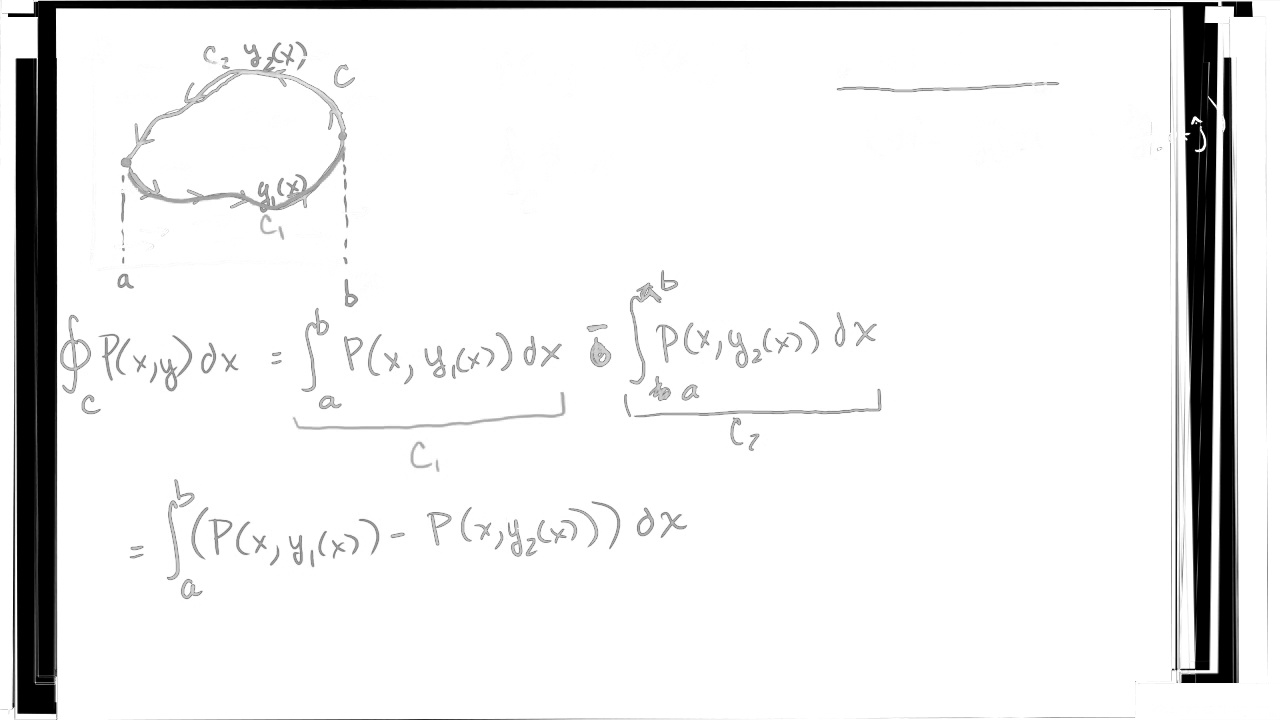 C₂ y₂(x)
C
y₁(x)
C₁
a
b
ĵ
∮_C P(x,y) dx = ∫_a^b P(x, y₁(x)) dx - ∫_a^b P(x, y₂(x)) dx
C₁
C₂
= ∫_a^b (P(x, y₁(x)) - P(x, y₂(x))) dx